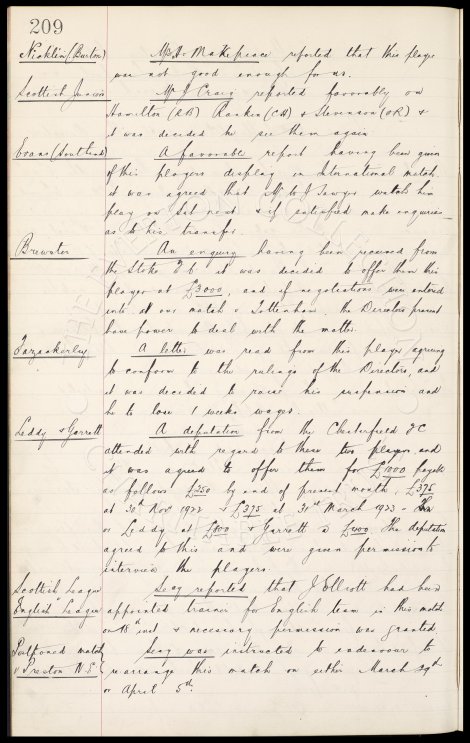 209
Nicklin (Burton) Mr H. Makepeace reported that this player
was not good enough for us.
Scottish Juniors Mr J Craig reported favorably on
Hamilton (RB) Rankin (CH) & Stevenson (OR) &
it was decided he see them again
Evans (Southend) A favorable report having been given
of this players display in International match
it was agreed that Mr W J Sawyer watch him
play on Sat next & if satisfied make enquiries
as to his transfer.
Brewster An enquiry having been received from
the Stoke F C it was decided to offer them this
player at £3000, and if negotiations were entered
into at our match v Tottenham the Directors present
have power to deal with the matter.
Fazackerley A letter was read from this player agreeing
to conform to the rulings of the Directors, and
it was decided to raise his suspension and
he to lose 1 weeks wages.
Leddy & Garratt A deputation from the Chesterfield F C
attended with regard to these two players and
it was agreed to offer them for £1000 payable
as follows £250 by end of present month, £375
at 30th Nov 1922 & £375 at 31st March 1923 -
or Leddy at £800 & Garratt @ £400 The deputation
agreed to this and were given permission to
interview the players.
Scottish League Secy reported that J Elliott had been
English League appointed trainer for English team in this match
on 18th inst & necessary permission was granted
Postponed match Secy was instructed to endeavour to
v Preston N.E rearrange this match on either March 29th
or April 5th.